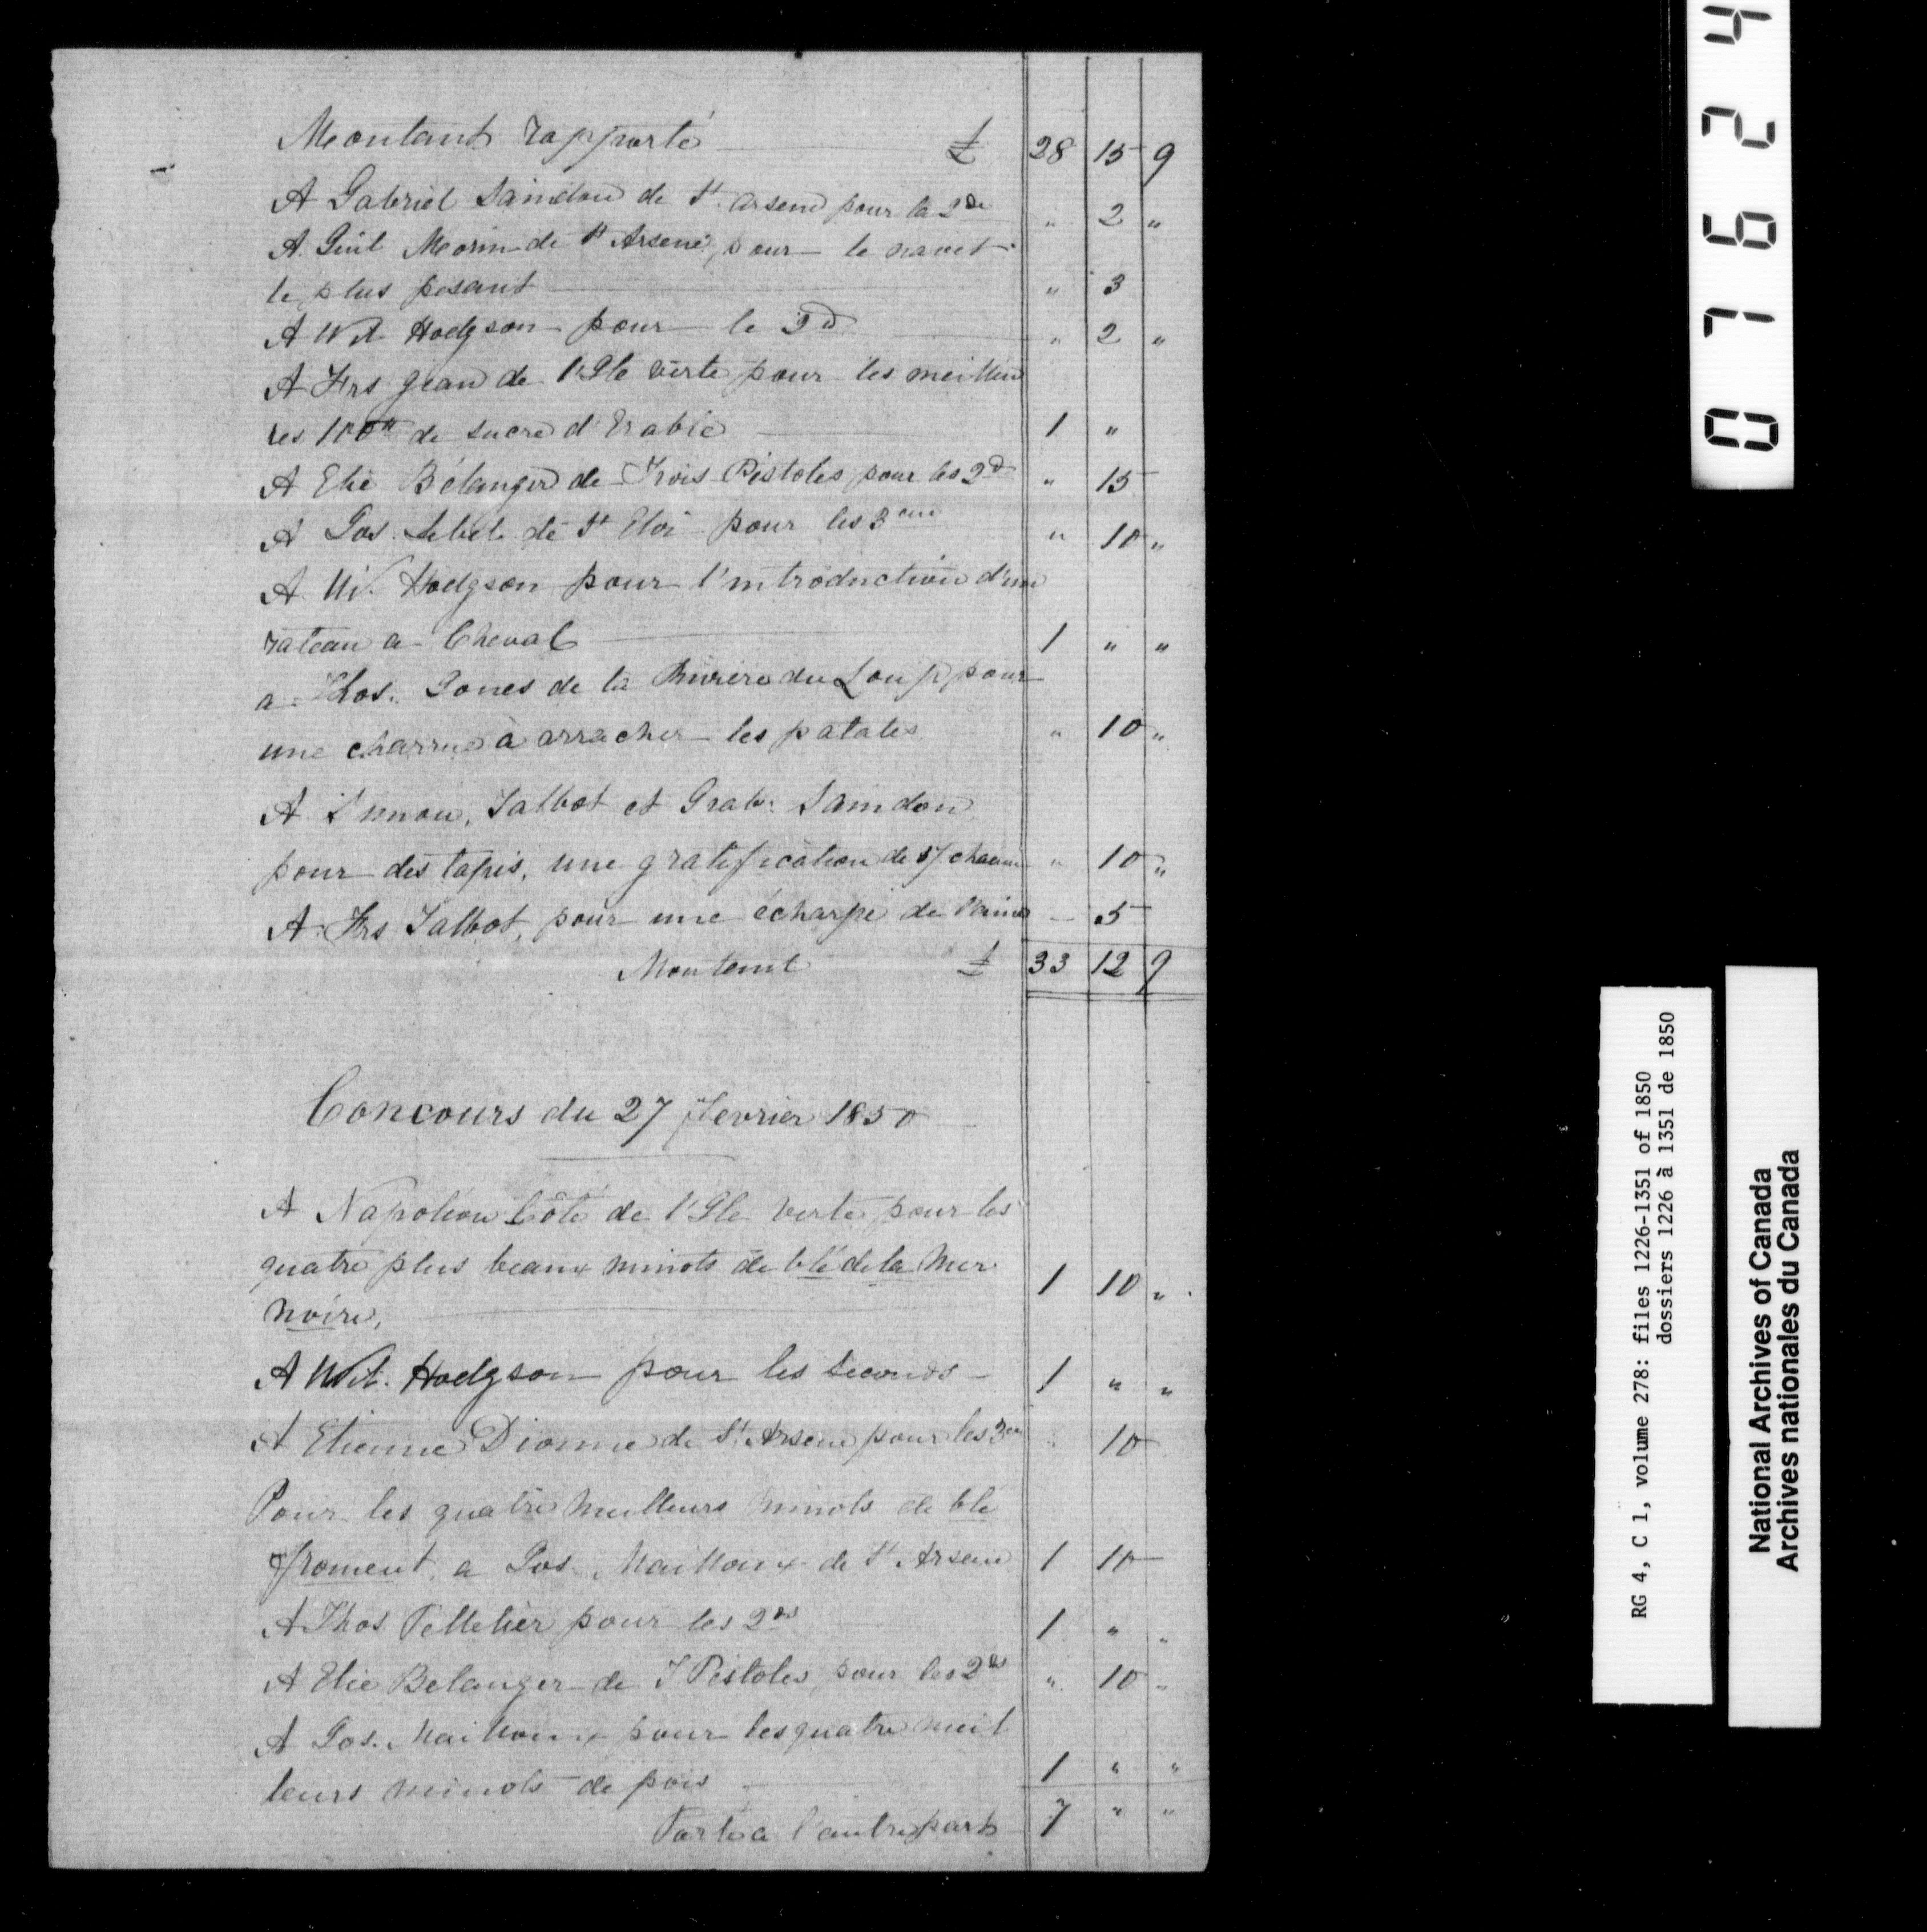 Montant rapporté £ 28 15 9
A Gabriel Saindon de St. Arsene pour la 2de " 2 "
A Guil Morin de St Arsene, pour le navet
le plus pesant " 3
A Wil Hodgson pour le 2d " 2 "
A Frs Jean de l'Ile verte pour les meilleu
res 100 tt de sucre d'Erable 1 "
A Elie Bélanger de Trois Pistoles, pour les 2d " 15
A Jos. Lebel de St Eloi pour les 3eme " 10 "
A W. Hodgson pour l'introduction d'un
rateau a Cheval 1 " "
a Thos. Jones de la Riviere du Loup, pour
une charrue à arracher les patates " 10 "
A Simon, Talbot et Gab: Saindon
pour des tapis, une gratification de 5/ chacun " 10 "
A Frs Talbot, pour une écharpe de laine - 5
Montant £ 33 12 9
Concours du 27 fevrier 1850
A Napoléon Côté de l'Ile verte pour les
quatre plus beaux minots de blé de la Mer 1 10 "
noire,
A Wil. Hodgson pour les seconds 1 " "
A Etienne Dionne de St. Arsene pour les 3em " 10
Pour les quatre meilleurs minots de blé
froment, a Jos. Mailloux de St Arsene 1 10
A Thos Pelletier pour les 2ds 1 " "
A Elie Belanger de T Pistoles, pour les 2ds " 10 "
A Jos. Mailloux pour les quatre meil
leurs minots de pois 1 " "
Porté a l'autre part 7 " "
07624
RG 4, C 1, volume 278: files 1226-1351 of 1850
dossiers 1226 à 1351 de 1850
National Archives of Canada
Archives nationales du Canada